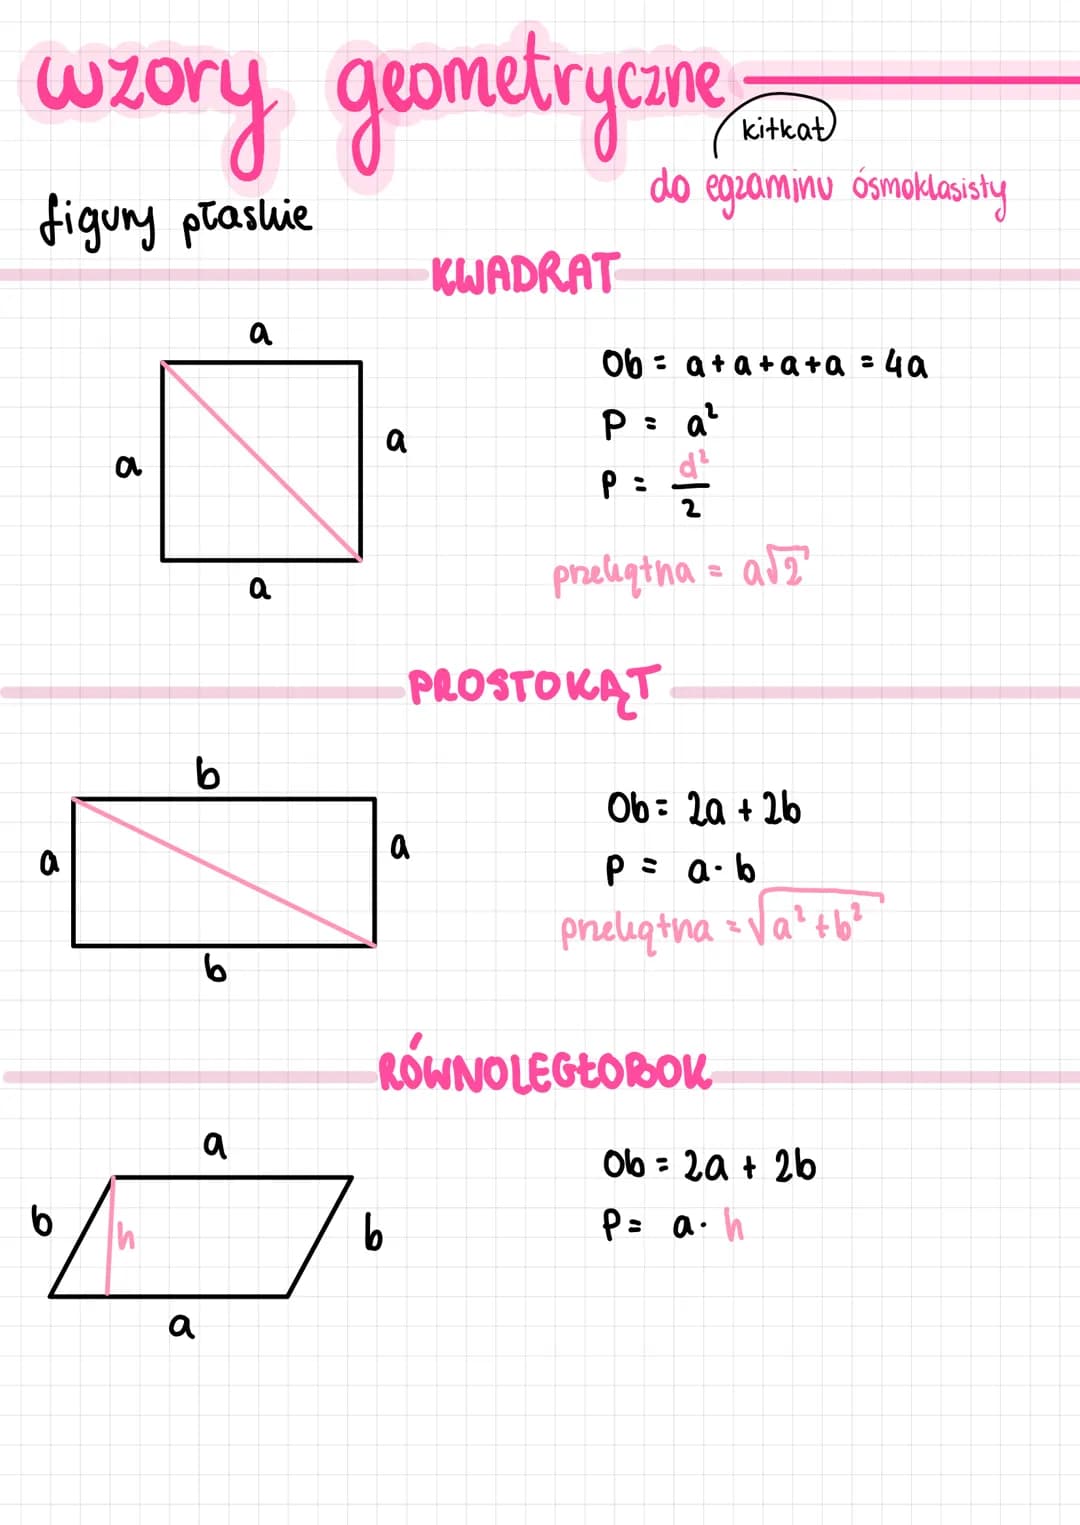 wzory geometryczne
kitkat
do egzaminu ósmoklasisty
figury płaskie
KWADRAT
a
a
a
a
Ob = a+a+a+a = 4a
P = a²
P = d²/2
przekątna = a√2
PROSTOKĄT
b
a
a
b
Ob = 2a + 2b
P = a·b
przekątna = √a²+b²
RÓWNOLEGŁOBOK
a
b
h
b
a
Ob = 2a + 2b
P = a·h